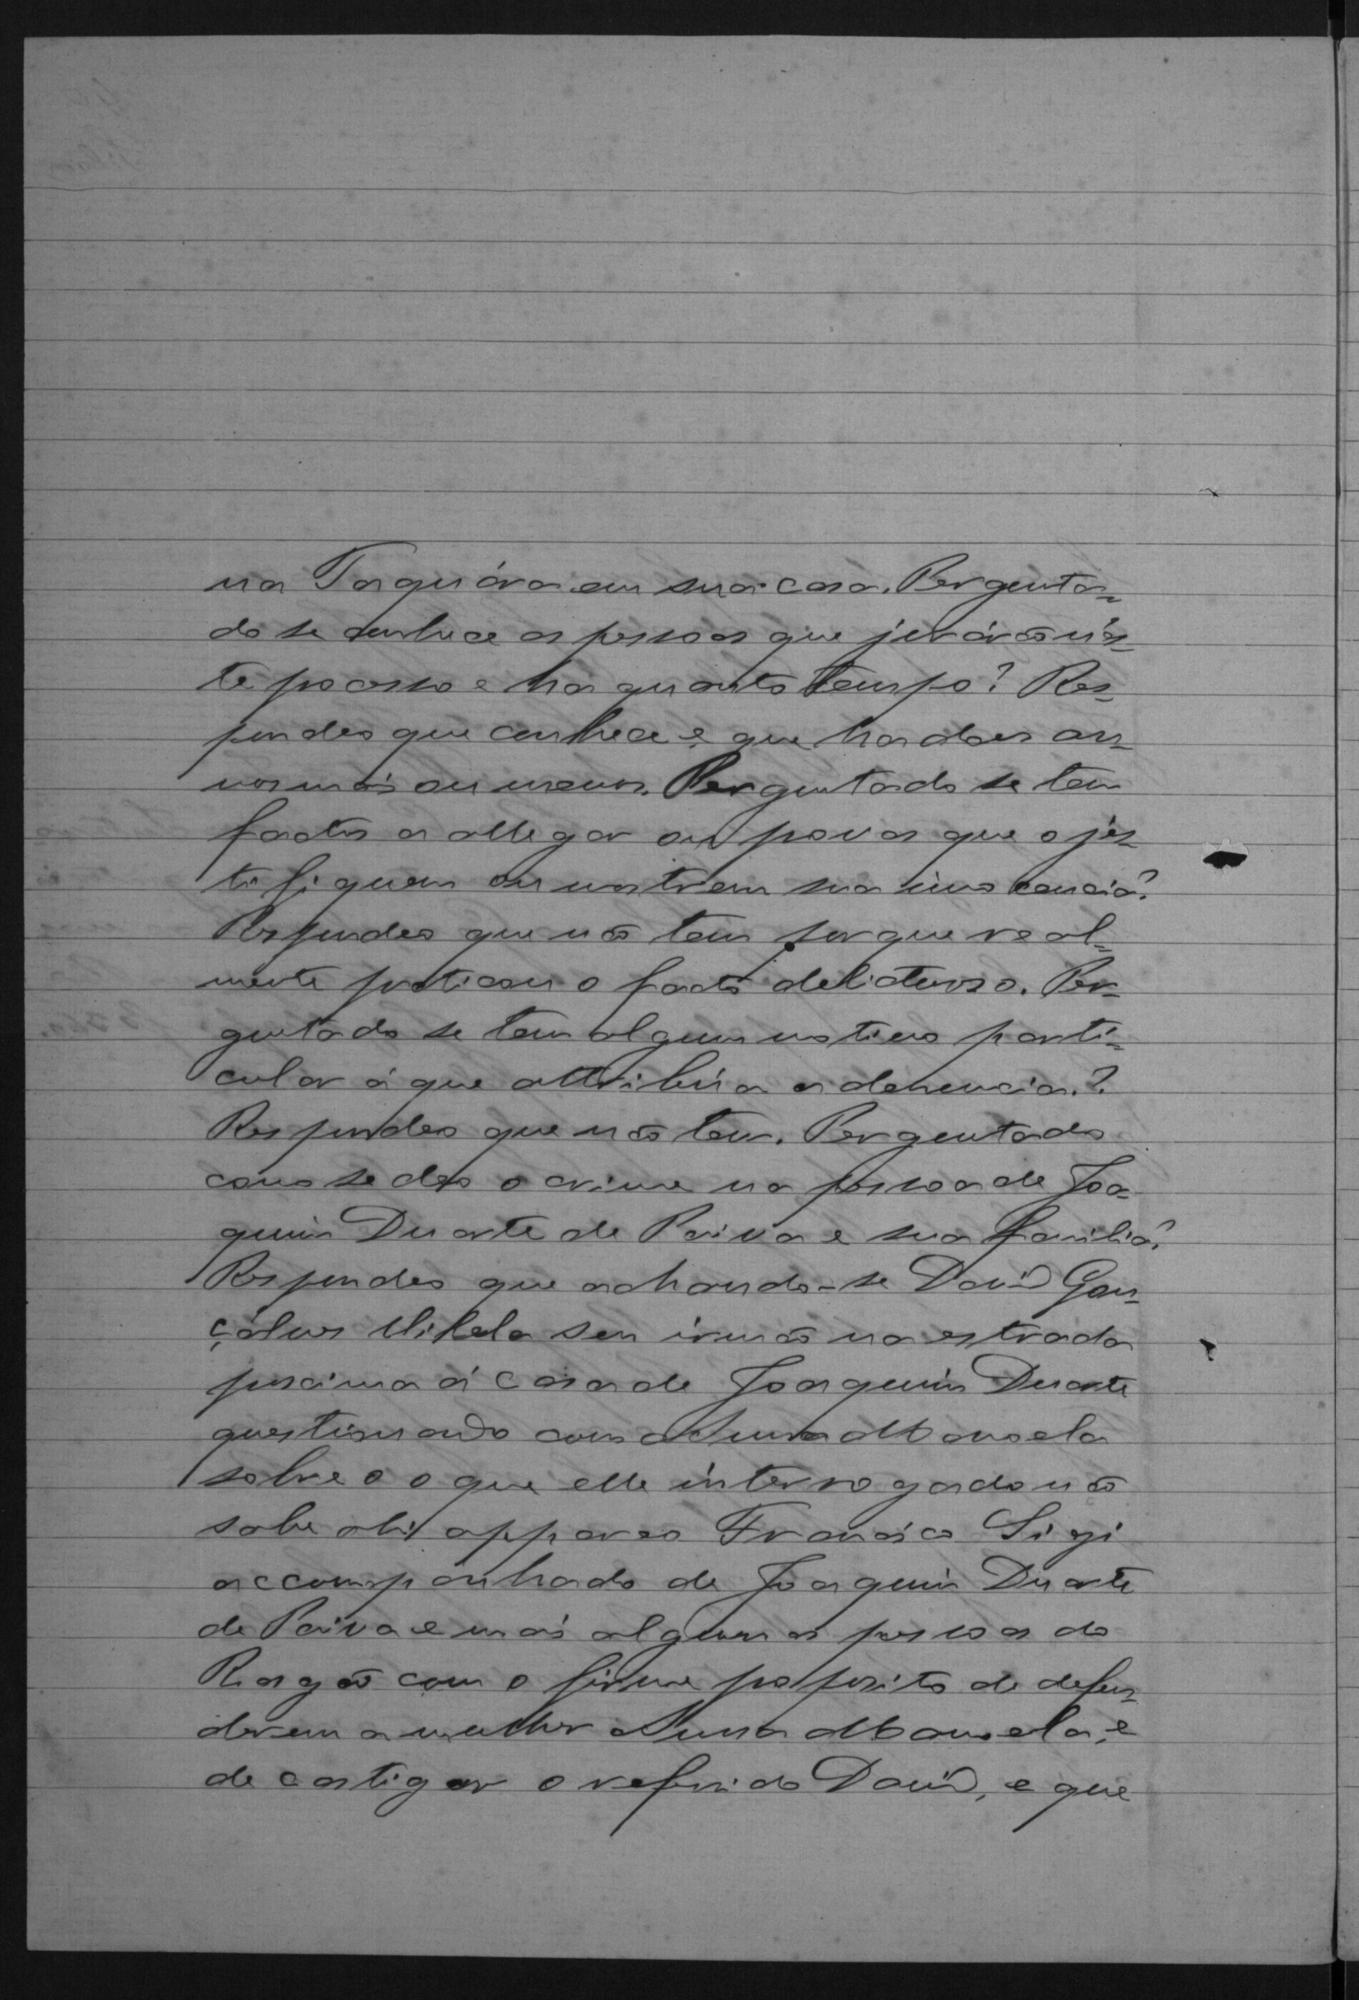 na Taquára em sua casa. Pergunta-
do se conhece as pessoas que jurárão nés-
te pocesso e há quanto tempo? Res-
pondeo que conhece e que ha dois an-
nos mais ou menos. Perguntado se tem
factos a allegar ou provas que o jús-
tifiquem ou mostrem sua innocencia?
Respondeo que não tem porque real-
mente praticou o facto delictuoso. Per-
guntado se tem algum motivo parti-
cular á que attribúa a denuncia?
Respondeo que não tem. Perguntado
como se deo o crime na pessoa de Joa-
quim Duarte de Paiva e sua familia?
Respondeo que achando-se David Gon-
çalves Vilela seu irmão na estrada
proxima á casa de Joaquim Duarte
questionando com a Anna Manoela
sobre o o que elle interrogado não
sabe ahi appareo Francisco Ligi
accompanhado de Joaquim Duarte
de Paiva e mais algumas pessoas do
Rasgão com o firme proposito de defen-
derem a mulher Anna Manoela, e
de castigar o referido David, e que